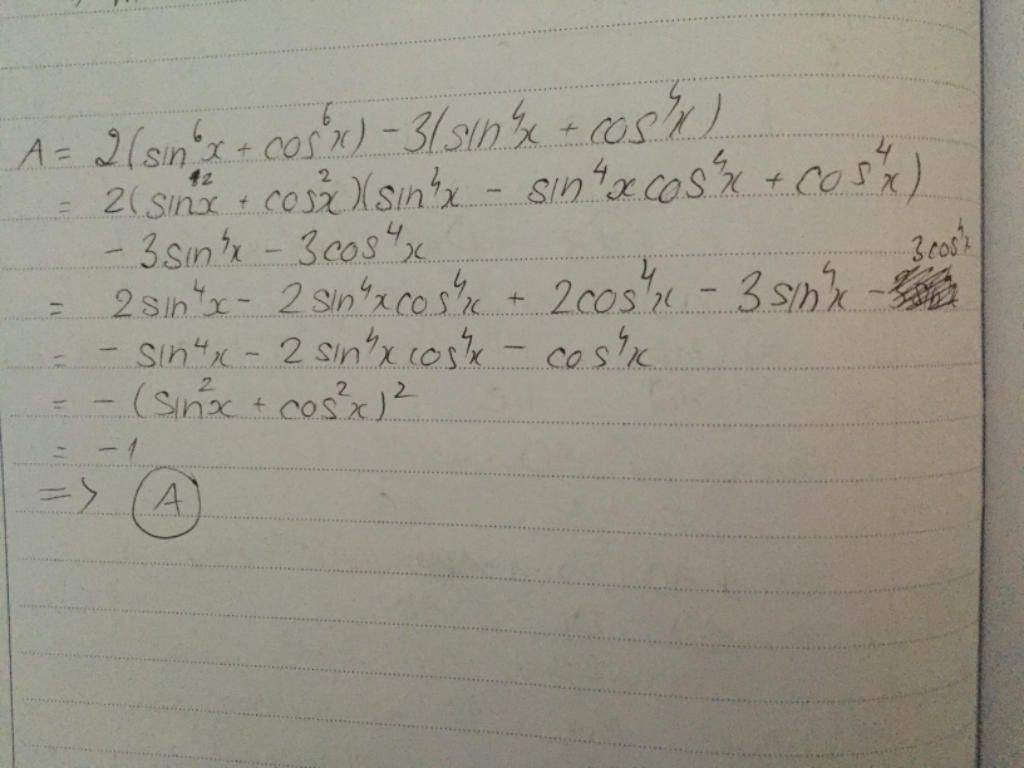 A = 2(sin⁶x + cos⁶x) - 3(sin⁴x + cos⁴x)
= 2(sin²x + cos²x)(sin⁴x - sin⁴x cos⁴x + cos⁴x)
- 3sin⁴x - 3cos⁴x
= 2sin⁴x - 2sin⁴x cos⁴x + 2cos⁴x - 3sin⁴x - 3cos⁴x
= - sin⁴x - 2sin⁴x cos⁴x - cos⁴x
= - (sin²x + cos²x)²
= -1
=> A